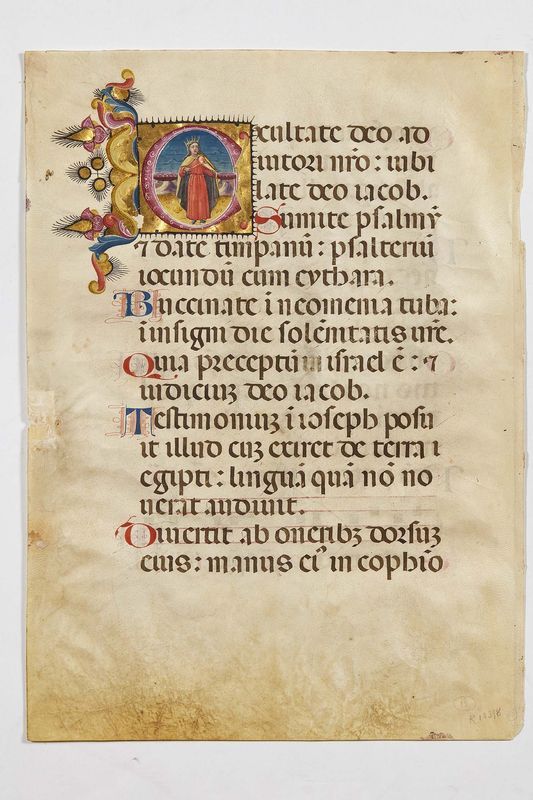 Excultate deo ad
iutori nr̄o : iubi
late deo iacob.
Sumite psalmū
⁊ date timpanū : psalteriū
iocundū cum cythara.
Buccinate ī neomenia tuba:
ī insigni die solēnitatis vr̄e.
Quia preceptū in israel ē : ⁊
iudiciuꝫ deo iacob.
Testimoniuꝫ ī ioseph posu
it illud cuꝫ exiret de terra e
egipti : linguā quā nō no
uerat audiuit.
Diuertit ab oneribꝫ dorsuꝫ
eius : manus eiꝰ in cophīo